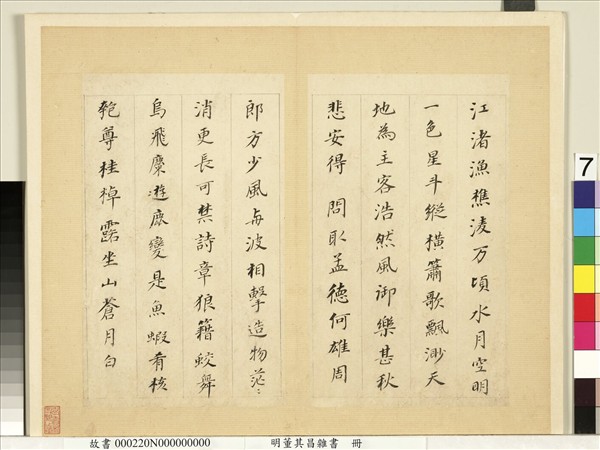 江渚漁樵淩万頃水月空明
一色星斗縱橫簫歌飄渺天
地為主客浩然風御樂甚秋
悲安得 問取孟德何雄周
郎方少風与波相擊造物茫〻
消更長可禁詩章狼籍蛟舞
烏飛麋遊鹿變是魚蝦肴核
匏尊桂棹露坐山蒼月白
7
故書 000220N000000000 明董其昌雜書 冊